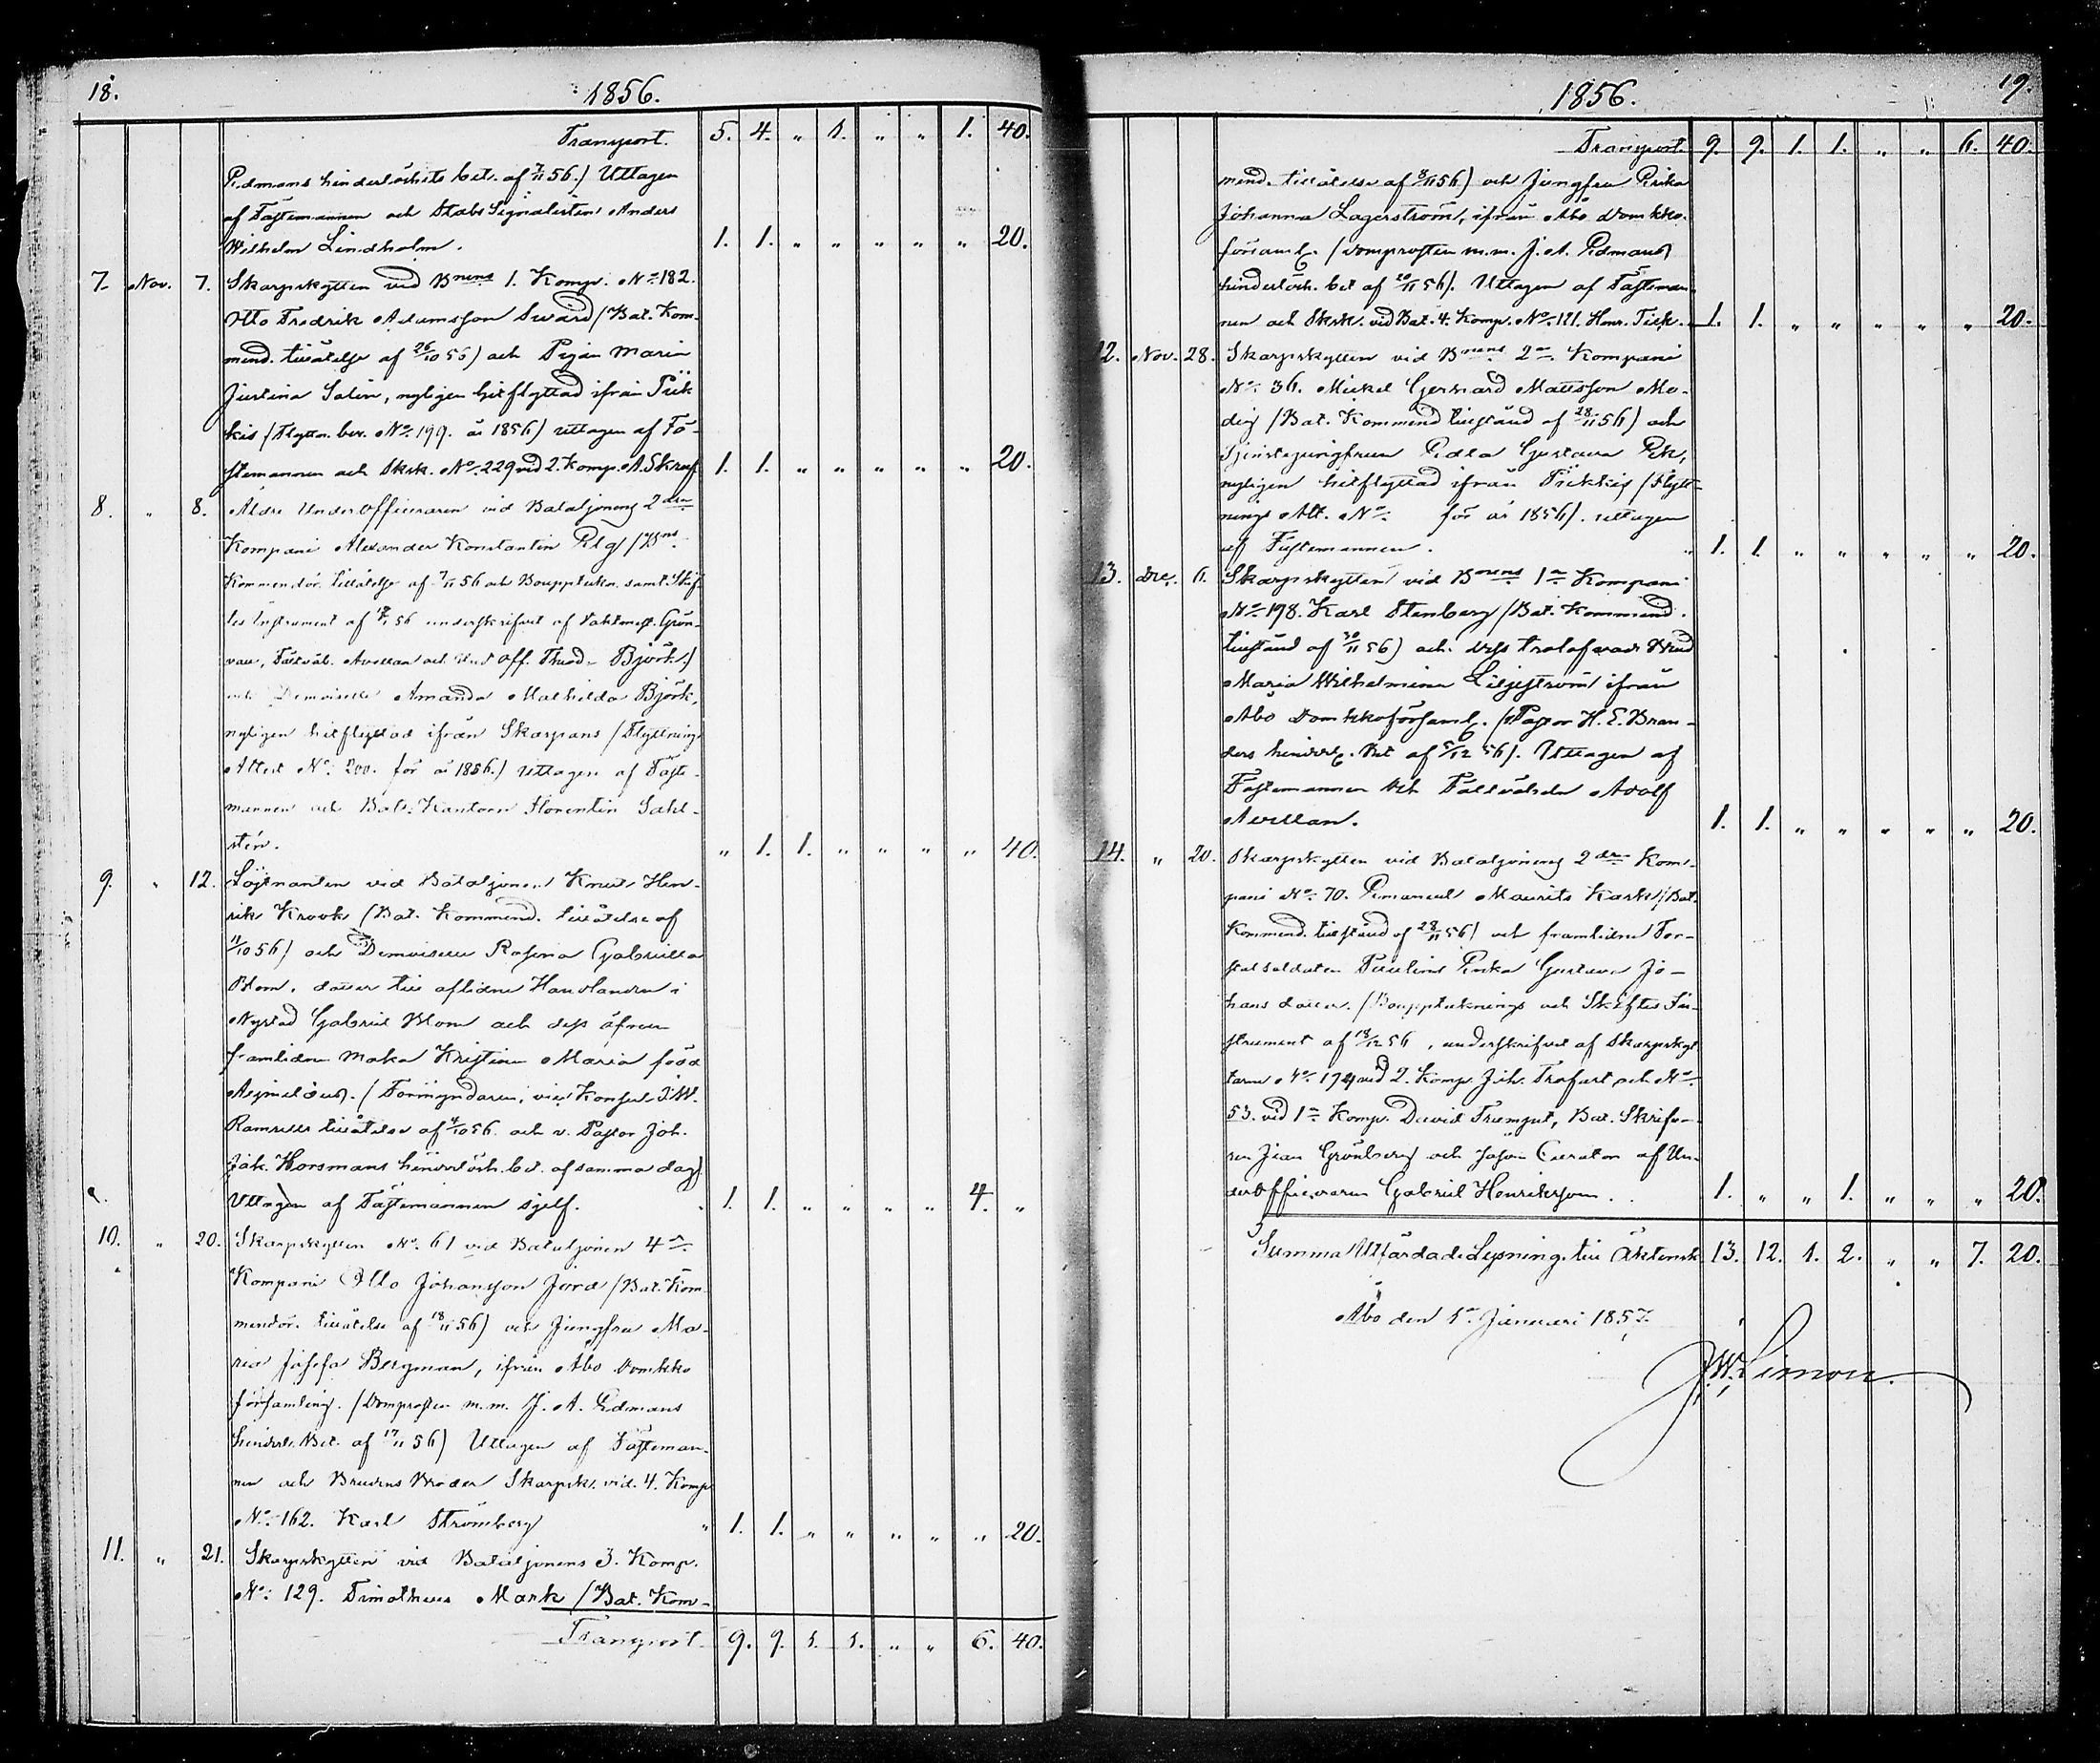 18.
1856.
Transport. 5. 4. „ 1. „ „ 1. 40.
Edmans hinderlöshets bet. af 7/11 56.) Uttagen
af Fästemannen och Stabs Signalisten Anders
Wilhelm Lindholm. 1. 1. „ „ „ „ „ 20.
7. Nov. 7. Skarpskytten vid Bnens 1. Komp. No 182.
Otto Fredrik Adamsson Swärd (Bat. Kom-
mend. tillåtelse af 26/10 56) och Pigan Maria
Justina Salin, nyligen hitflyttad ifrån Piik
kis (Flyttn. bev. No. 199. år 1856) uttagen af Fä-
stemannen och Skrsk. No. 229 vid 2. Komp. A. Skruf 1. 1. „ „ „ „ „ 20.
8. „ 8. Äldre Underofficeraren vid Bataljonens 2dra
Kompani Alexander Konstantin Elg (Bns
Kommendör. tillåtelse af 7/11 56 och Boupptekn. samt Skif-
tes Instrument af 56 underskrifvet af Vaktmest. Grön-
vall, Fältväb. Avellan och Und. off. Theod. Björk.)
och Demoiselle Amanda Mathilda Björk,
nyligen hitflyttad ifrån Skarpans (Flyttnings
Attest No. 200. för år 1856.) Uttagen af Fäste-
mannen och Bat. Kantorn Florentin Sahl-
stén. „ 1. 1. „ „ „ „ 40.
9. „ 12. Löjtnanten vid Bataljonen Knut Hen-
rik Krook (Bat. Kommend. tillåtelse af
11/10 56) och Demoiselle Rosina Gabriella
Blom, dotter till aflidne Handlanden i
Nystad Gabriel Blom och dess äfven
framlidne Maka Kristina Maria född
(Förmyndaren, vice Konsul I. W.
tillåtelse af 4/10 56. och v. Pastor Joh.
Jak. Horsmans hinderlösh. bet. af samma dag)
Uttagen af Fästemannen sjelf. 1. 1. „ „ „ „ 4. „
10. „ 20. Skarpskytten No. 61 vid Bataljonen 4de
Kompani Otto Johansson Jord (Bat. Kom-
mendör. tillåtelse af 18/11 56) och Jungfru Ma-
ria Josefa Bergman, ifrån Åbo Domkko
församling. (Domprosten m.m. J. A. Edmans
hinderl. Bet. af 17/11 56) Uttagen af Fästeman-
nen och Brudens Broder Skarpsk. vid 4. Komp
No. 162. Karl Strömberg 1. 1. „ „ „ „ „ 20.
11. „ 21. Skarpskytten vid Bataljonens 3. Komp.
No. 129. Timotheus Mark (Bat. Kom-
Transport 9. 9. 1. 1. „ „ 6. 40.
1856.
19.
Transport. 9. 9. 1. 1. „ „ 6. 40.
mend. tillåtelse af 8/11 56) och Jungfru Erika
Johanna Lagerström, ifrån Åbo Domkko.
församl. (Domprosten m.m. J. A. Edmans
hinderlösh. bet af 20/11 56). Uttagen af Fästeman-
nen och Skrsk. vid Bat. 4. Komp. No. 121. Henr. Tick. 1. 1. „ „ „ „ „ 20.
12. Nov. 28. Skarpskytten vid Bnens 2a Kompani
No. 36. Mickel Gerhard Mattsson Mo-
dig (Bat. Kommend tillstånd af 28/11 56) och
Tjenstejungfrun Edla Gustava Ek,
nyligen hitflyttad ifrån Piikkis (Flytt-
nings Att. No. för år 1856). uttagen
af Fästemannen. 1. 1. „ „ „ „ „ 20.
13. Dec. 6. Skarpskytten vid Bnens 1a Kompani
No 198. Karl Stenberg (Bat. Kommend.
tillstånd af 30/11 56) och dess trolofvade Brud
Maria Wilhelmina Liljeström ifrån
Åbo Domkkoförsaml. (Pastor H. E. Bran-
ders hinderl. Bet af 5/12 56). Uttagen af
Fästemannen och Fältväbeln Adolf
Avellan. 1. 1. „ „ „ „ „ 20.
14. „ 20. Skarpskytten vid Bataljonens 2dra Kom-
pani No. 70. Emanuel Maurits Kark (Bat.
Kommend. tillstånd af 28/11 56) och framlidne Tor-
Erika Gustava Jo-
hans dotter. (Boupptecknings och Skiftes In-
strument af 18/12 56, underskrifvet af Skarpskyt
tarne No. 174 vid 2. Komp. Joh. Trofast och No
53. vid 1a Komp. David Trumpet, Bat. Skrifva-
ren Jean Grönberg och såsom Curator af Un-
derofficeraren Gabriel Henriksson. 1. „ „ 1. „ „ „ 20.
Summa Utfärdade Lysning. till Äktensk. 13. 12. 1. 2. „ „ 7. 20.
Åbo den 1a Januari 1857.
J. W. Limon.